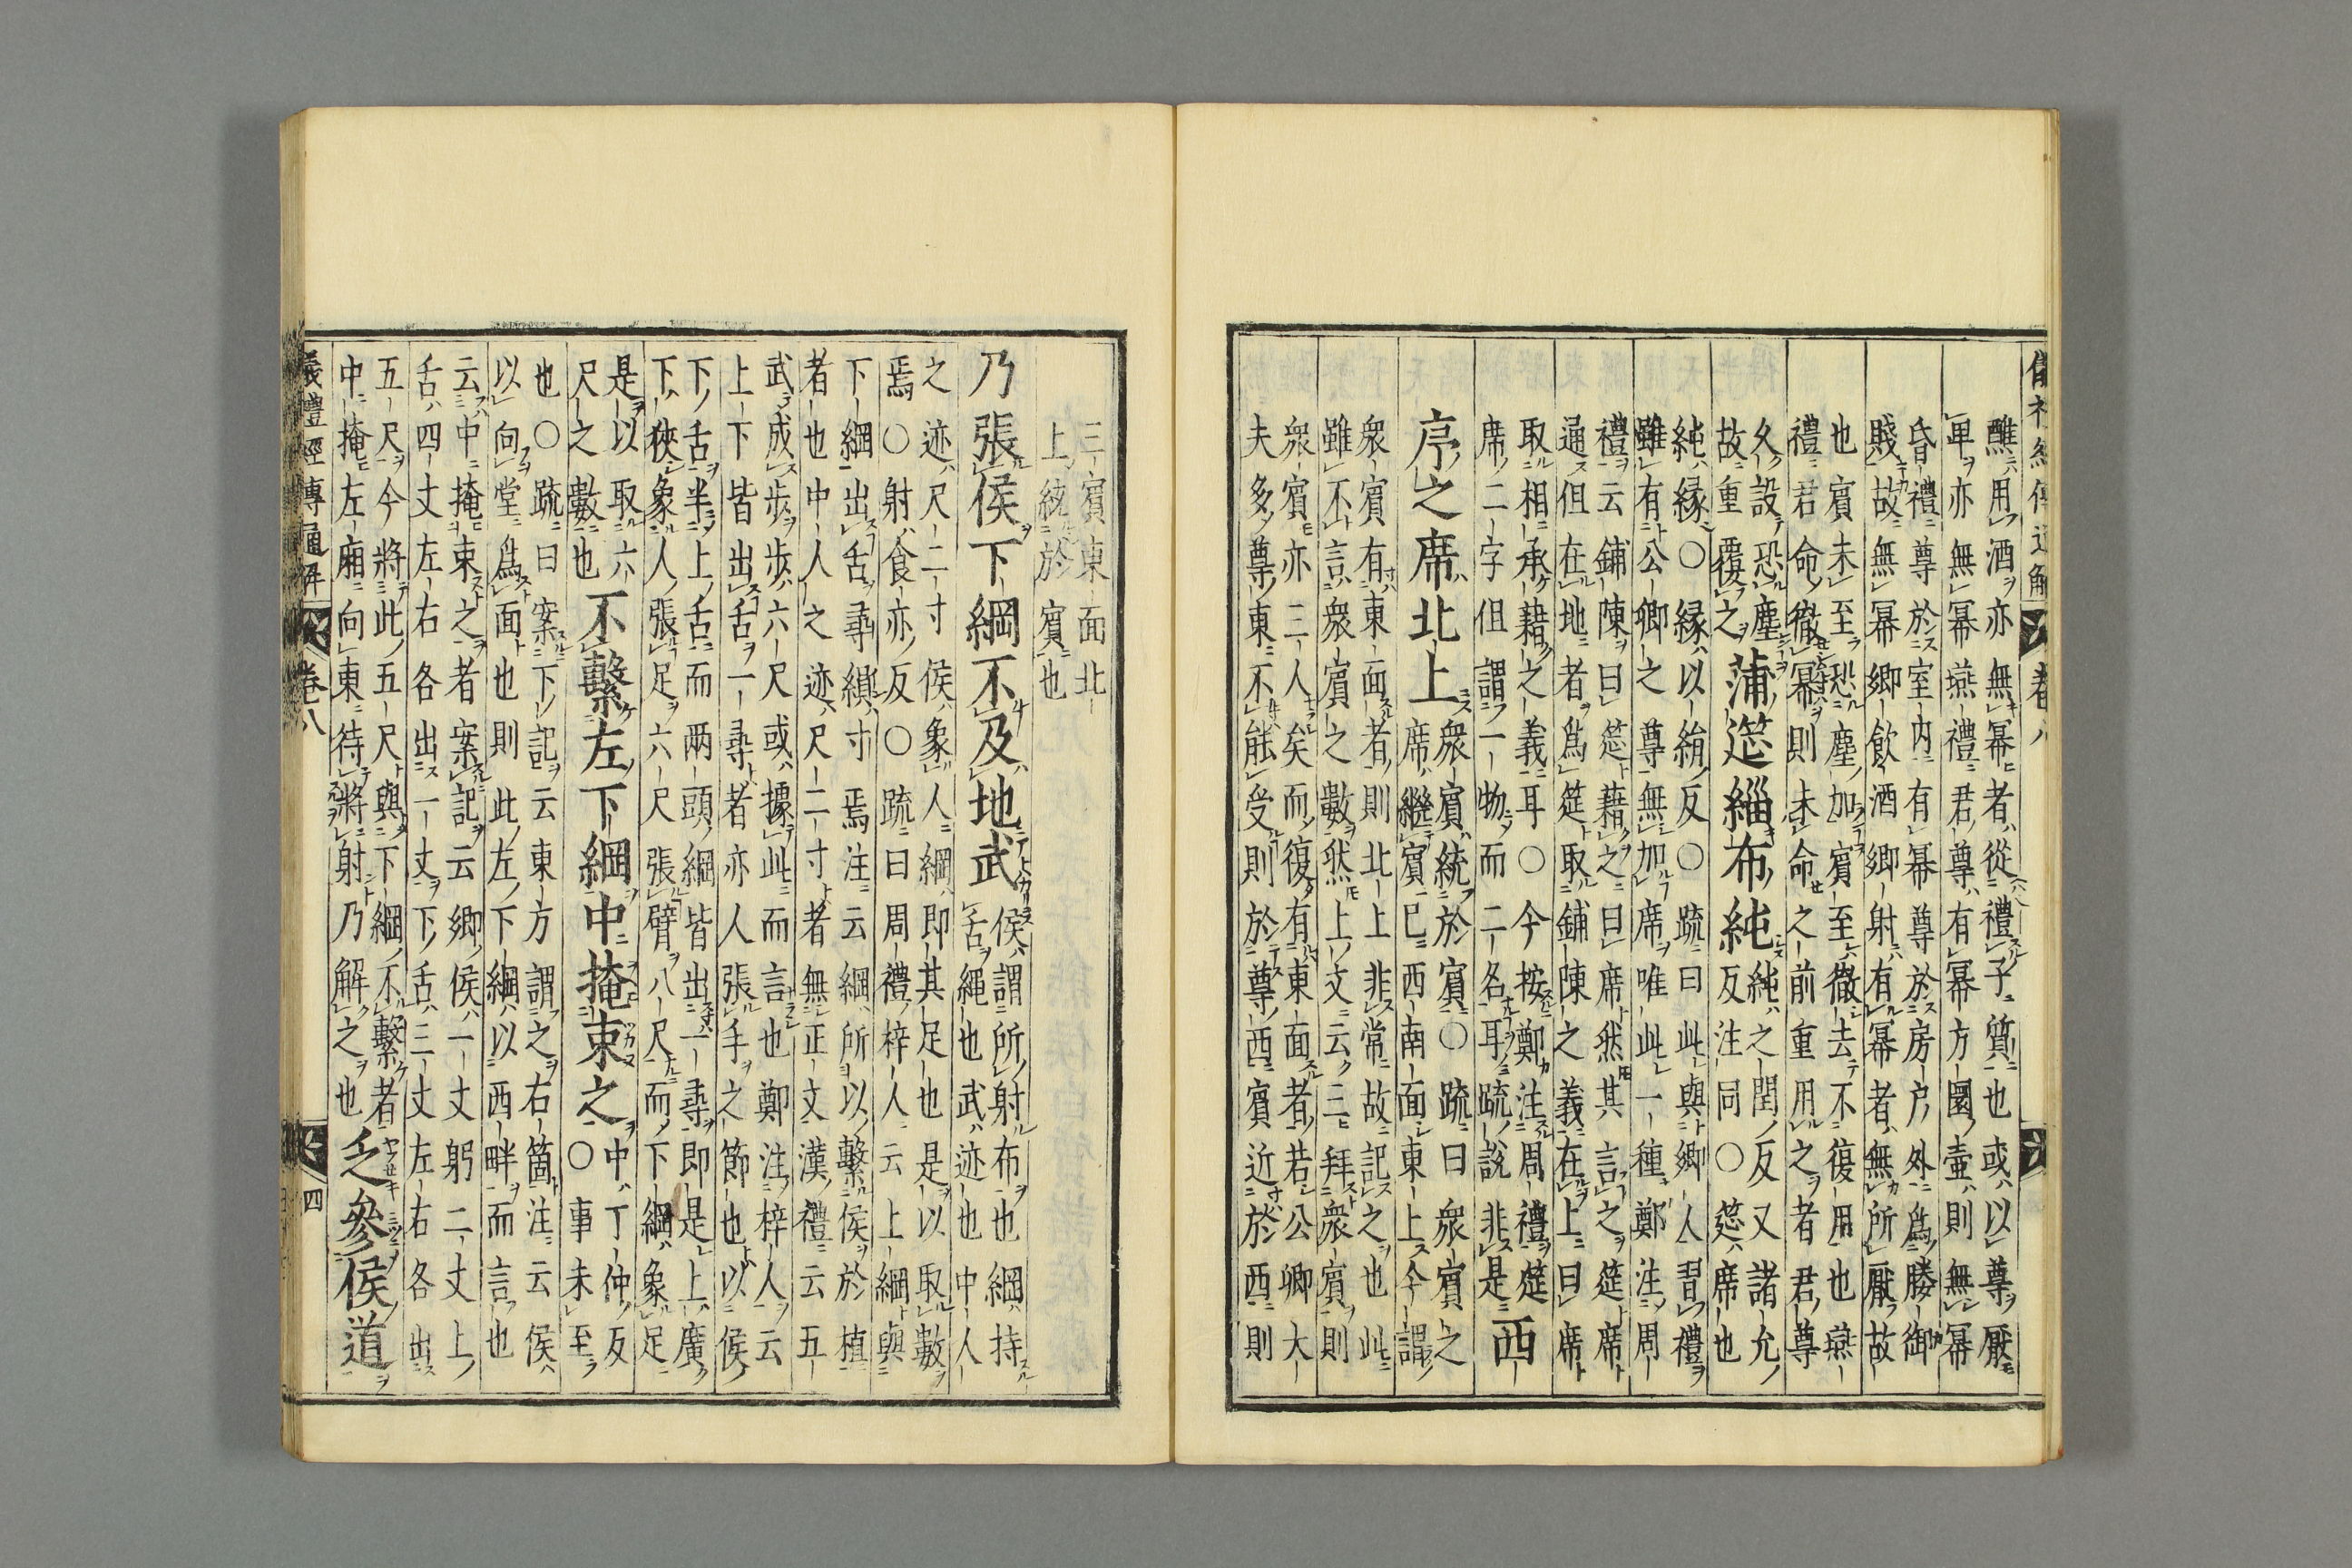 儀禮經傳通解 卷八
醮用酒亦無冪者從禮子質也或以尊厭
卑亦無冪燕禮君尊有冪方圜壺則無冪
昏禮尊於室内有冪尊於房戶外爲媵御
賤故無冪鄉飲酒鄉射有冪者無所厭故
也賓未至恐塵加賓至徹去不復用也燕
禮君命徹冪則未命之前重用之者君尊
久設恐塵
故重覆之
蒲筵緇布純
純之閏反又諸允
反注同〇筵席也
純緣〇緣以絹反〇疏曰此與鄉人習禮
雖有公卿之尊無加席唯此一種鄭注周
禮云鋪陳曰筵藉之曰席然其言之筵席
通但在地者爲筵取鋪陳之義在上曰席
取相承藉之義耳〇今按鄭注周禮筵
席二字但謂一物而二名耳疏說非是
西
序之席北上
衆賓統於賓〇疏曰衆賓之
席繼賓已西南面東上今謂
衆賓有東面者則北上非常故記之也此
雖不言衆賓之數然上文云三拜衆賓則
衆賓亦三人矣而復有東面者若公卿大
夫多尊東不能受則於尊西賓近於西則
三賓東面北
上統於賓也
乃張侯下綱不及地武
侯謂所射布也綱持
舌繩也武迹也中人
之迹尺二寸侯象人綱即其足也是以取數
焉〇射食亦反〇疏曰周禮梓人云上綱與
下綱出舌尋縜寸焉注云綱所以繫侯於植
者也中人之迹尺二寸者無正文漢禮云五
武成步步六尺或據此而言也鄭注梓人云
上下皆出舌一尋者亦人張手之節也以侯
下舌半上舌而兩頭綱皆出一尋即是上廣
下狹象人張足六尺張臂八尺而下綱象足
是以取六
尺之數也
不繫左下綱中掩束之
中丁仲反
〇事未至
也〇疏曰案下記云東方謂之右箇注云侯
以向堂爲面也則此左下綱以西畔而言也
云中掩束之者案記云鄉侯一丈躬二丈上
舌四丈左右各出一丈下舌三丈左右各出
五尺今將此五尺與下綱不繫者
中掩左廂向東待將射乃解之也
乏參侯道
儀禮經傳通解 卷八 四